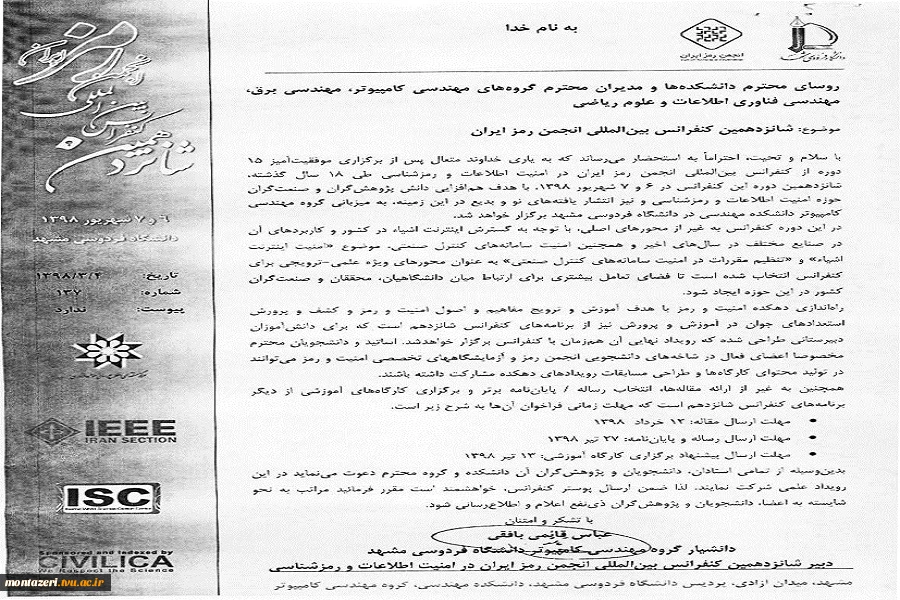 به نام خدا
انجمن رمز ایران
روسای محترم دانشکده‌ها و مدیران محترم گروه‌های مهندسی کامپیوتر، مهندسی برق،
مهندسی فناوری اطلاعات و علوم ریاضی
موضوع: شانزدهمین کنفرانس بین‌المللی انجمن رمز ایران
با سلام و تحیت، احتراماً به استحضار می‌رساند که به یاری خداوند متعال پس از برگزاری موفقیت‌آمیز ۱۵
دوره از کنفرانس بین‌المللی انجمن رمز ایران در امنیت اطلاعات و رمزشناسی طی ۱۸ سال گذشته،
شانزدهمین دوره این کنفرانس در ۶ و ۷ شهریور ۱۳۹۸، با هدف هم‌افزایی دانش پژوهش‌گران و صنعت‌گران
حوزه امنیت اطلاعات و رمزشناسی و نیز انتشار یافته‌های نو و بدیع در این زمینه، به میزبانی گروه مهندسی
کامپیوتر دانشکده مهندسی در دانشگاه فردوسی مشهد برگزار خواهد شد.
در این دوره کنفرانس به غیر از محورهای اصلی، با توجه به گسترش اینترنت اشیاء در کشور و کاربردهای آن
در صنایع مختلف در سال‌های اخیر و همچنین امنیت سامانه‌های کنترل صنعتی، موضوع «امنیت اینترنت
اشیاء» و «تنظیم مقررات در امنیت سامانه‌های کنترل صنعتی» به عنوان محورهای ویژه علمی-ترویجی برای
کنفرانس انتخاب شده است تا فضای تعامل بیشتری برای ارتباط میان دانشگاهیان، محققان و صنعت‌گران
کشور در این حوزه ایجاد شود.
راه‌اندازی دهکده امنیت و رمز با هدف آموزش و ترویج مفاهیم و اصول امنیت و رمز و کشف و پرورش
استعدادهای جوان در آموزش و پرورش نیز از برنامه‌های کنفرانس شانزدهم است که برای دانش‌آموزان
دبیرستانی طراحی شده که رویداد نهایی آن هم‌زمان با کنفرانس برگزار خواهدشد. اساتید و دانشجویان محترم
مخصوصا اعضای فعال در شاخه‌های دانشجویی انجمن رمز و آزمایشگاههای تخصصی امنیت و رمز می‌توانند
در تولید محتوای کارگاه‌ها و طراحی مسابقات رویدادهای دهکده مشارکت داشته باشند.
همچنین به غیر از ارائه مقاله‌ها، انتخاب رساله / پایان‌نامه برتر و برگزاری کارگاه‌های آموزشی از دیگر
برنامه‌های کنفرانس شانزدهم است که مهلت زمانی فراخوان آن‌ها به شرح زیر است.
• مهلت ارسال مقاله: ۱۲ خرداد ۱۳۹۸
• مهلت ارسال رساله و پایان‌نامه: ۲۷ تیر ۱۳۹۸
• مهلت ارسال پیشنهاد برگزاری کارگاه آموزشی: ۱۳ تیر ۱۳۹۸
بدین‌وسیله از تمامی استادان، دانشجویان و پژوهش‌گران آن دانشکده و گروه محترم دعوت می‌نماید در این
رویداد علمی شرکت نمایند. لذا ضمن ارسال پوستر کنفرانس، خواهشمند است مقرر فرمائید مراتب به نحو
شایسته به اعضاء، دانشجویان و پژوهش‌گران ذی‌نفع اعلام و اطلاع‌رسانی شود.
با تشکر و امتنان
عباس قائمی بافقی
دانشیار گروه مهندسی کامپیوتر دانشگاه فردوسی مشهد
دبیر شانزدهمین کنفرانس بین‌المللی انجمن رمز ایران در امنیت اطلاعات و رمزشناسی
مشهد، میدان آزادی، پردیس دانشگاه فردوسی مشهد، دانشکده مهندسی، گروه مهندسی کامپیوتر
شانزدهمین
کنفرانس بین‌المللی
انجمن رمز ایران
۶ و ۷ شهریور ۱۳۹۸
دانشگاه فردوسی مشهد
تاریخ: ۱۳۹۸/۳/۲
شماره: ۱۳۷
پیوست: ندارد
IEEE
IRAN SECTION
ISC
Sponsored and Indexed by
CIVILICA
We Respect the Science
montazeri.tvu.ac.ir